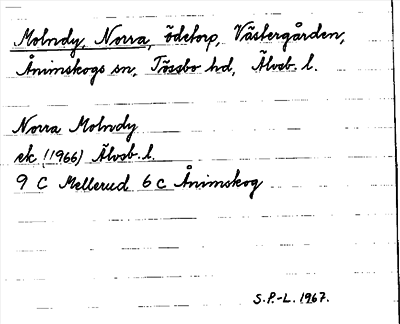 Molndy, Norra, ödetorp, Västergården,
Ånimskogs sn, Tössbo hd, Älvsb. l.
Norra Molndy
ek (1966) Älvsb. l.
9 C Mellerud 6 c Ånimskog
S.P.-L. 1967.